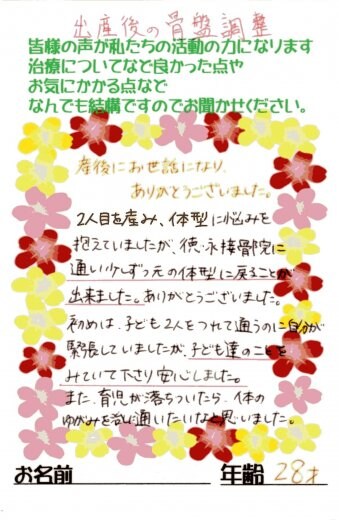 出産後の骨盤調整
皆様の声が私たちの活動の力になります
治療についてなど良かった点や
お気にかかる点など
なんでも結構ですのでお聞かせください。
産後にお世話になり、
ありがとうございました。
2人目を産み、体型に悩みを
抱えていましたが、徳永接骨院に
通い少しずつ元の体型に戻ることが
出来ました。ありがとうございました。
初めは、子ども2人をつれて通うのに自分が
緊張していましたが、子ども達のことを
みていて下さり安心しました。
また、育児が落ちついたら、体の
ゆがみを治しに通いたいなと思いました。
お名前 年齢 28才